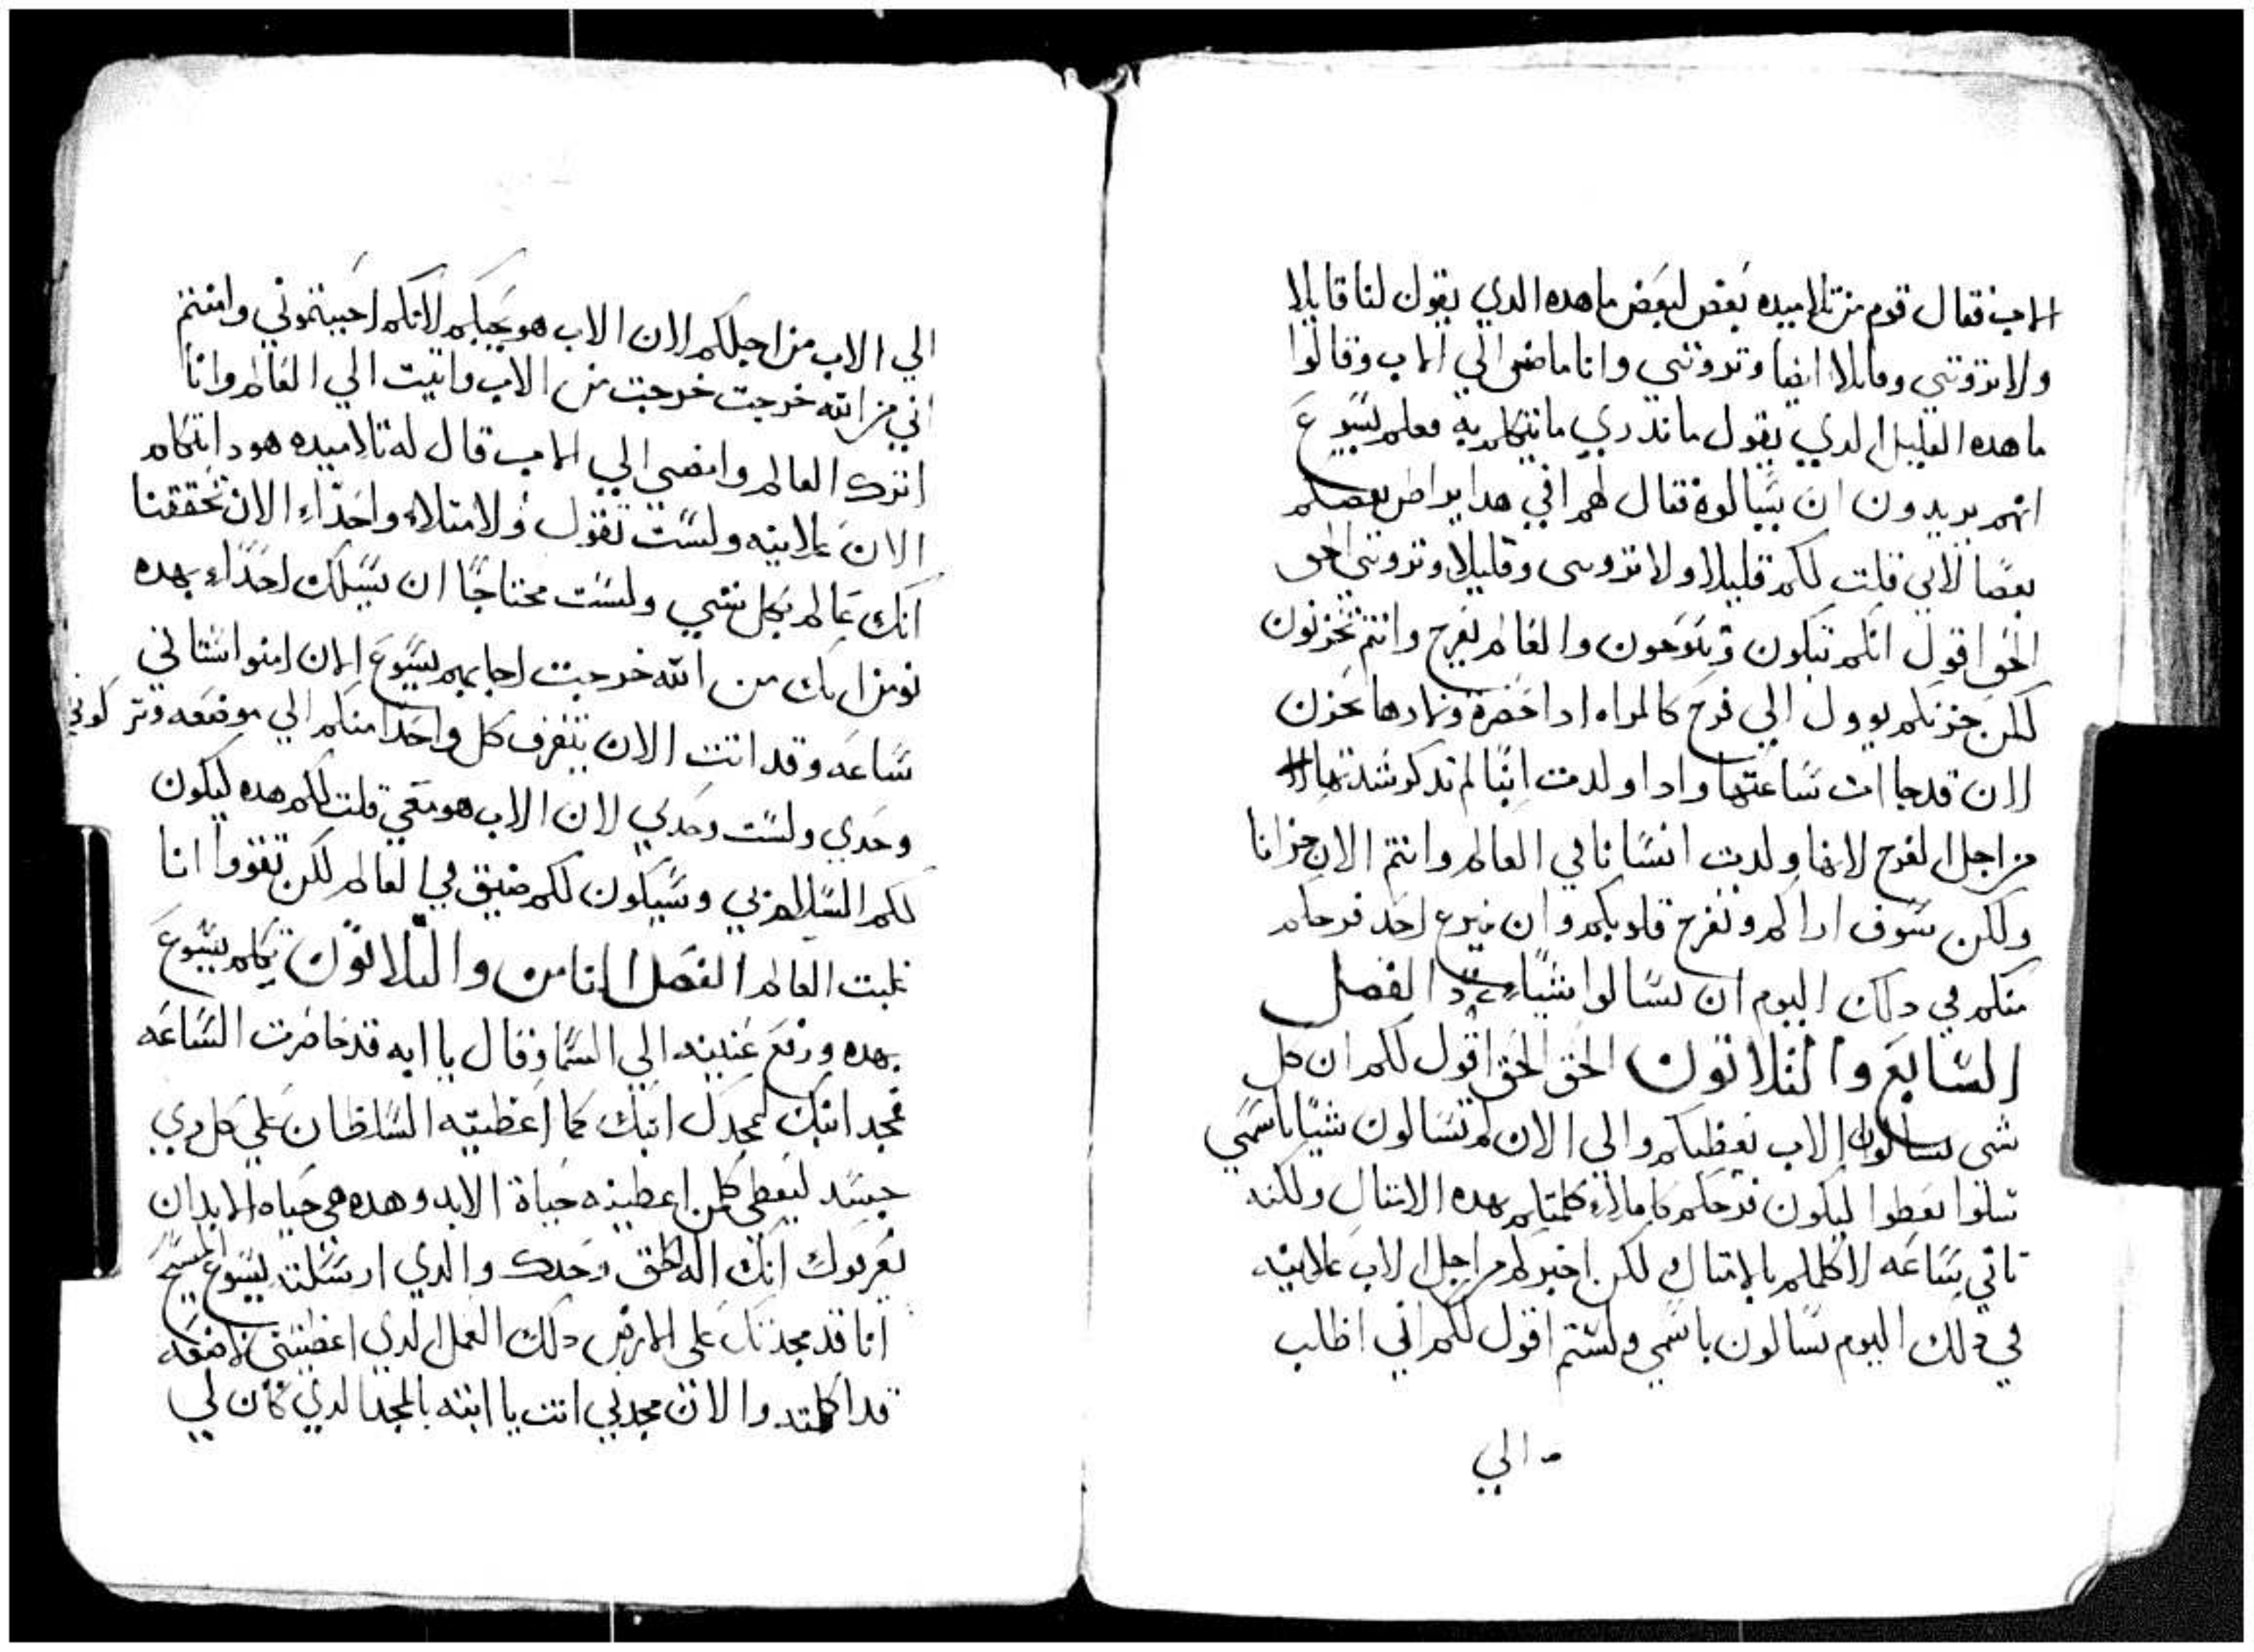 الاب فقال قوم من تلاميده بعض لبعض ما هده الدي يقول لنا قايلا
ولا تروني وقايلا ايضا وتروني وانا ماضي الي الاب وقالوا
ما هده القليل الدي يقول ما ندري ما يتكلم به فعلم يسوع
انهم يريدون ان يسالوه فقال لهم افي هدا يراطن بعضكم
بعضا لاني قلت لكم قليلا ولا تروني وقليلا وتروني الحق
الحق اقول انكم تبكون وتنوحون والعالم يفرح وانتم تحزنون
لكن حزنكم يوول الي فرح كالمراه ادا حضرة ولادها تحزن
لان قد جاات ساعتها وادا ولدت ابنا لم تدكر شدتها
من اجل الفرح لانها ولدت انسانا في العالم وانتم الان حزانا
ولكن سوف اراكم وتفرح قلوبكم ولن ينزع احد فرحكم
منكم في دلك اليوم لن تسالوا شياء الفصل
السابع والتلاتون الحق الحق اقول لكم ان كل
شي تسالون الاب يعطيكم والي الان لم تسالون شيا باسمي
سلوا تعطوا ليكون فرحكم كاملاء كلمتكم بهده الامتال ولكنه
تاتي ساعه لا اكلمكم بالامتال لكن اخبركم من اجل الاب علانيه
في دلك اليوم تسالون باسمي ولستم اقول لكم اني اطلب
الي
الي الاب من اجلكم لان الاب هو يحبكم لانكم احببتموني وامنتم
اني من الله خرجت خرجت من الاب واتيت الي العالم وانا
اترك العالم وامضي الي الاب قال له تلاميده هودا تتكلم
الان علانيه ولست تقول ولا متلاء واحداء الان تحققنا
انك عالم بكل شي ولست محتاجا ان يسيلك احداء بهده
نومن انك من الله خرجت اجابهم يسوع الان امنوا ستاتي
ساعه وقد اتت الان يتفرق كل واحد منكم الي موضعه وتتركوني
وحدي ولست وحدي لان الاب هو معي قلت لكم هده ليكون
لكم السلام بي وسيكون لكم ضيق في العالم لكن تقووا انا
غلبت العالم الفصل التامن والتلاتون تكلم يسوع
بهده ورفع عينيه الي السما وقال يا ابه قد حاضرت الساعه
فمجد ابنك ليمجدك ابنك كما اعطيته السلطان علي كل دي
جسد ليعطي كلمن اعطيته حياة الابد وهده هي حياه الابد ان
يعرفوك انك اله الحق وحدك والدي ارسلته يسوع المسيح
انا قد مجدتك علي الارض دلك العمل الدي اعطيتني لاصنعه
قد اكملته والان مجدني انت يا ابته بالمجد الدي كان لي